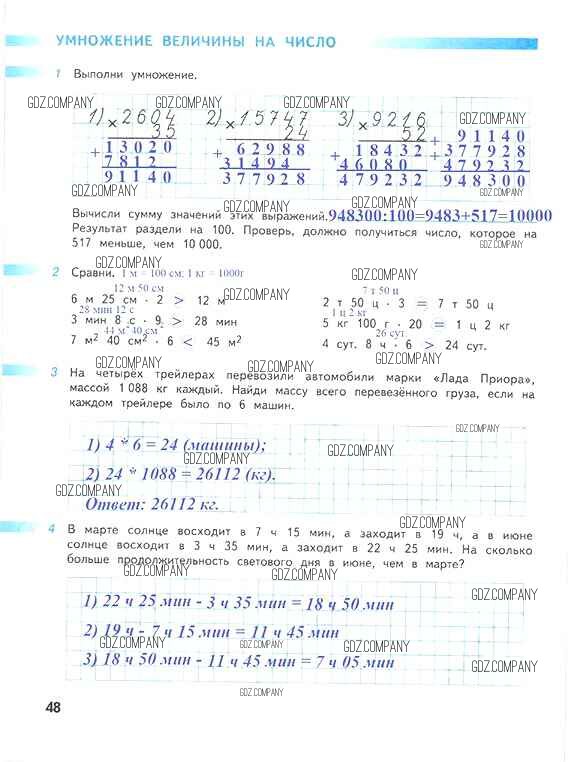 УМНОЖЕНИЕ ВЕЛИЧИНЫ НА ЧИСЛО
1 Выполни умножение.
GDZ.COMPANY GDZ.COMPANY GDZ.COMPANY
1) × 2604 2) × 15747 3) × 9216 GDZ.COMPANY
35 24 52 + 91140
+ 13020 + 62988 + 18432 + 377928
7812 31494 46080 479232
91140 377928 479232 948300
GDZ.COMPANY GDZ.COMPANY
GDZ.COMPANY GDZ.COMPANY
Вычисли сумму значений этих выражений. 948300:100=9483+517=10000
Результат раздели на 100. Проверь, должно получиться число, которое на
517 меньше, чем 10 000.
GDZ.COMPANY
2 Сравни. 1 м = 100 см; 1 кг = 1000г GDZ.COMPANY
12 м 50 см 7 т 50 ц
6 м 25 см · 2 > 12 м GDZ.COMPANY 2 т 50 ц · 3 = 7 т 50 ц
28 мин 12 с 1 ц 2 кг
3 мин 8 с · 9 > 28 мин 5 кг 100 г · 20 = 1 ц 2 кг
44 м² 40 см² 26 сут
7 м² 40 см² · 6 < 45 м² 4 сут. 8 ч · 6 > 24 сут.
GDZ.COMPANY GDZ.COMPANY
GDZ.COMPANY
3 На четырех трейлерах перевозили автомобили марки «Лада Приора»,
массой 1 088 кг каждый. Найди массу всего перевезённого груза, если на
каждом трейлере было по 6 машин.
GDZ.COMPANY
1) 4 * 6 = 24 (машины);
GDZ.COMPANY GDZ.COMPANY
2) 24 * 1088 = 26112 (кг).
GDZ.COMPANY
Ответ: 26112 кг.
GDZ.COMPANY
4 В марте солнце восходит в 7 ч 15 мин, а заходит в 19 ч, а в июне
солнце восходит в 3 ч 35 мин, а заходит в 22 ч 25 мин. На сколько
больше продолжительность светового дня в июне, чем в марте?
GDZ.COMPANY GDZ.COMPANY
GDZ.COMPANY
1) 22 ч 25 мин - 3 ч 35 мин = 18 ч 50 мин
2) 19 ч - 7 ч 15 мин = 11 ч 45 мин
GDZ.COMPANY GDZ.COMPANY
3) 18 ч 50 мин - 11 ч 45 мин = 7 ч 05 мин
GDZ.COMPANY
GDZ.COMPANY
48